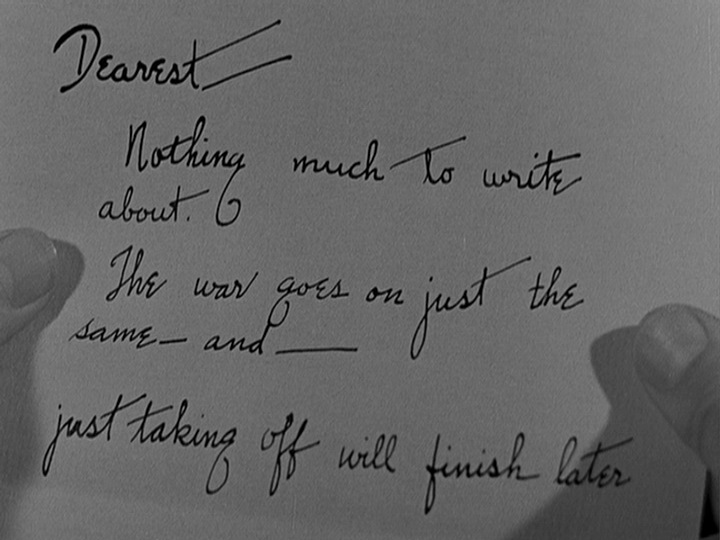 Dearest
Nothing much to write
about.
The war goes on just the
same— and ——
just taking off will finish later